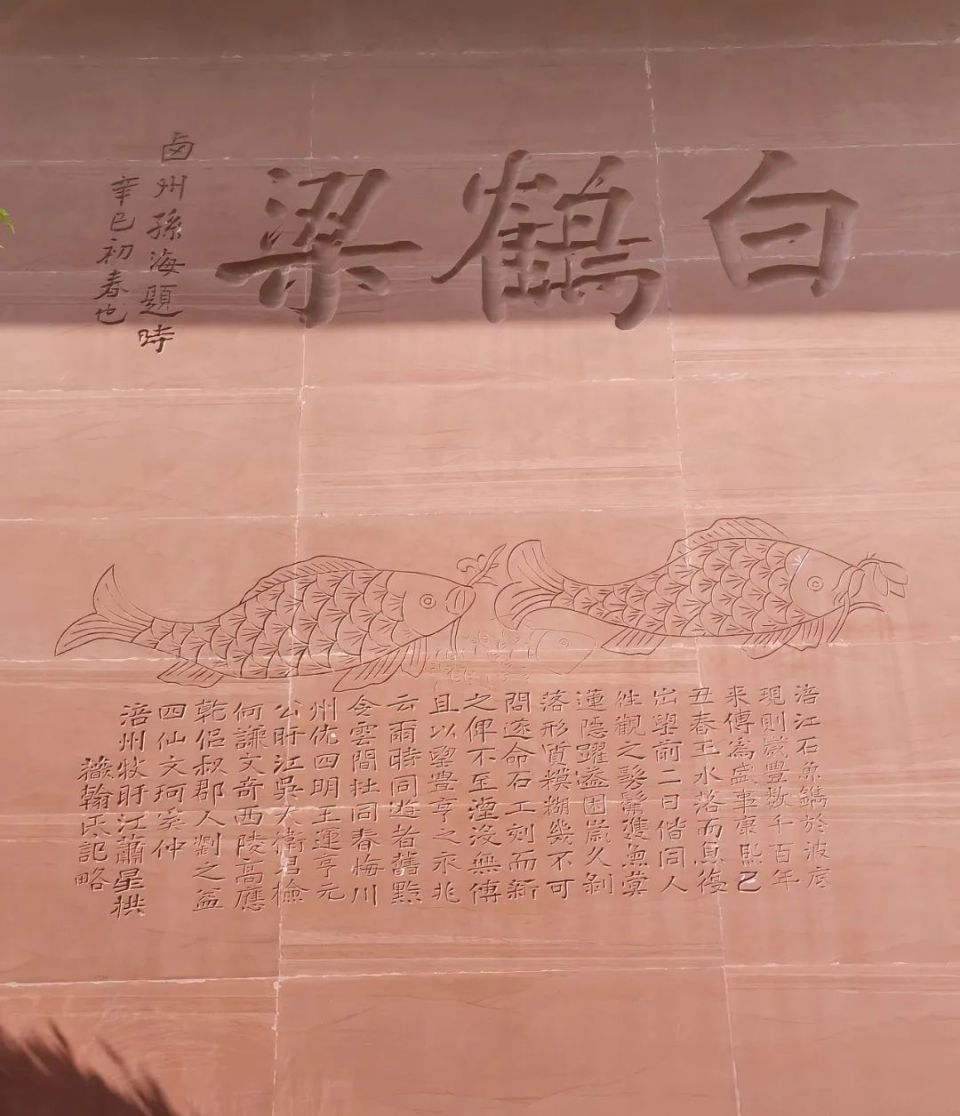 白鶴梁
卤州孫海題時
辛巳初春也
涪江石魚鐫於波底
現則歲豐數千百年
來傳為盛事康熙乙
丑春王水落而魚復
出望前二日偕同人
往觀之髣髴雙魚蓂
蓮隱躍蓋因歲久剝
落形質模糊幾不可
問遂命石工刻而新
之俾不至湮沒無傳
且以望豐亨之永兆
云爾時同遊者舊黔
令雲間杜同春梅川
州佐四明王運亨元
公旴江吳天衡昌檢
何謙文奇西陵高應
乾侶叔郡人劉之益
四仙文珂奚仲
涪州牧旴江蕭星拱
薇翰氏記略